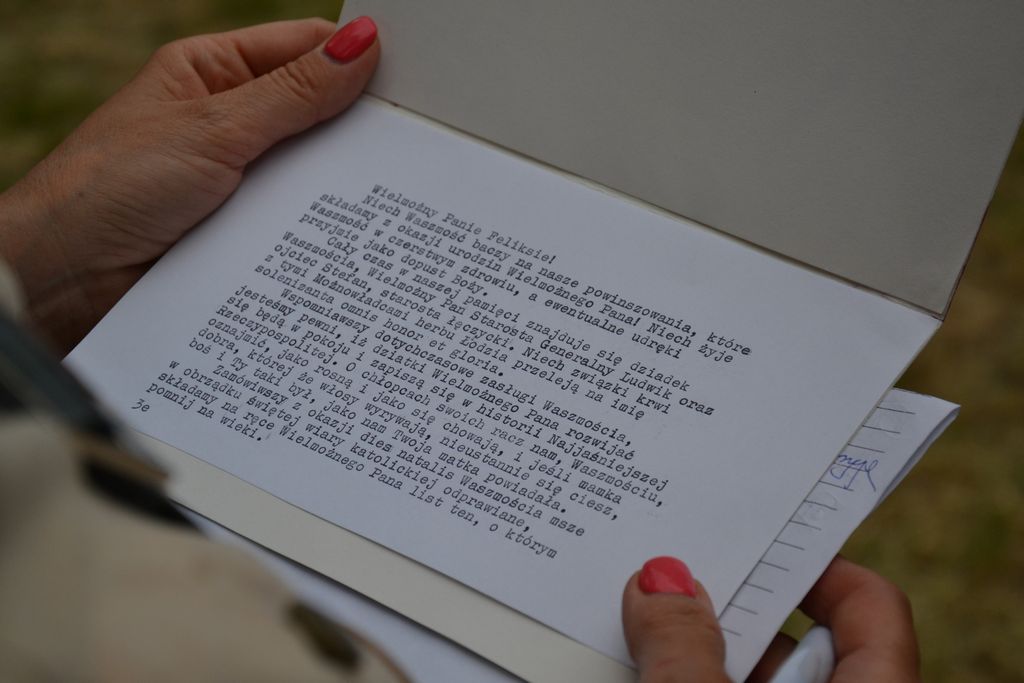 Wielmożny Panie Feliksie!
Niech Waszmość baczy na nasze powinszowania, które
składamy z okazji urodzin Wielmożnego Pana! Niech żyje
Waszmość w czerstwym zdrowiu, a ewentualne udręki
przyjmie jako dopust Boży.
Cały czas w naszej pamięci znajduje się dziadek
Waszmościa, Wielmożny Pan Starosta Generalny Ludwik oraz
ojciec Stefan, starosta łęczycki. Niech związki krwi
z tymi Możnowładcami herbu Łodzia przeleją na imię
solenizanta omnis honor et gloria.
Wspomniawszy dotychczasowe zasługi Waszmościa,
jesteśmy pewni, iż dziatki Wielmożnego Pana rozwijać
się będą w pokoju i zapiszą się w historii Najjaśniejszej
Rzeczypospolitej. O chłopcach swoich racz nam, Waszmościu,
oznajmić, jako rosną i jako się chowają, i jeśli mamka
dobra, której że włosy wyrywają, nieustannie się ciesz,
boś i Ty taki był, jako nam Twoja matka powiadała.
Zamówiwszy z okazji dies natalis Waszmościa msze
w obrządku świętej wiary katolickiej odprawiane,
składamy na ręce Wielmożnego Pana list ten, o którym
pomnij na wieki.